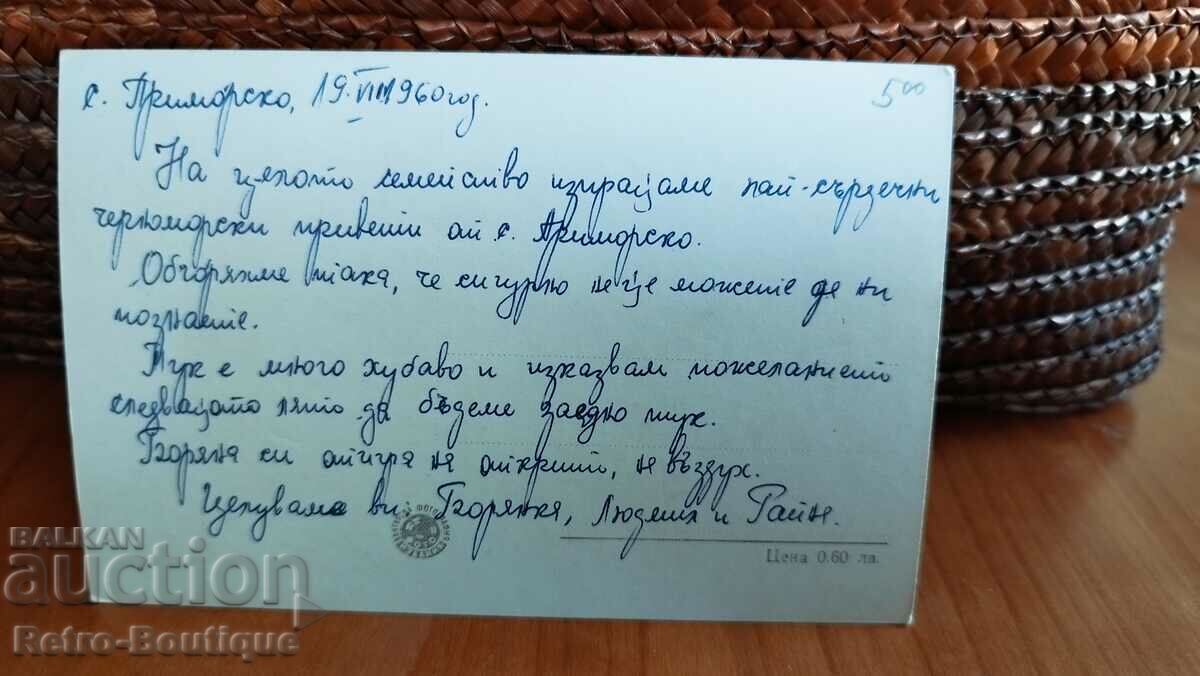 с. Приморско, 19.VIII1960 год.
5⁰⁰
На цялото семейство изпращаме най-сърдечни
черноморски привети от с. Приморско.
Обгоряхме така, че сигурно не ще можете да ни
познаете.
Тук е много хубаво и изказвам пожеланието
следващото лято да бъдеме заедно тук.
си отигра на открит, на въздух.
Целуваме ви: Людмил и Райна.
Цена 0.60 лв.
BALKAN
auction
Retro-Boutique